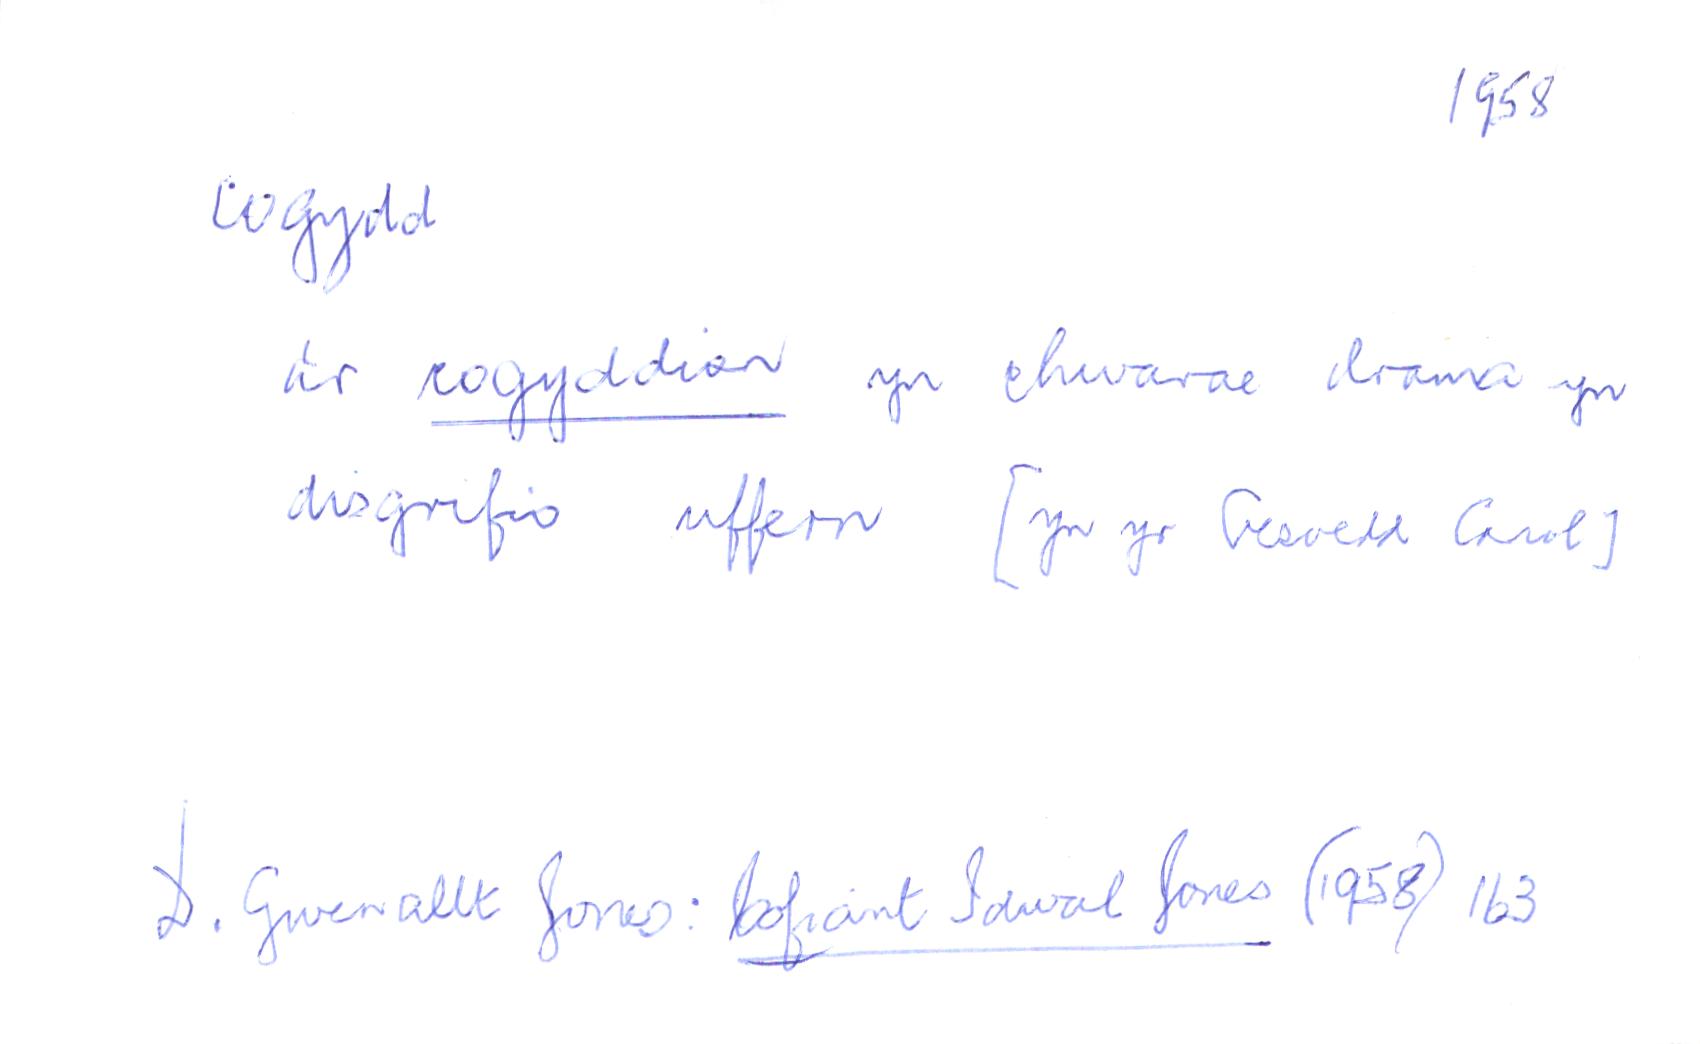 1958
cogydd
a'r cogyddion yn chwarae drama yn
disgrifio uffern [yn yr Oesoedd Canol]
D. Gwenallt Jones: Cofiant Idwal Jones (1958) 163